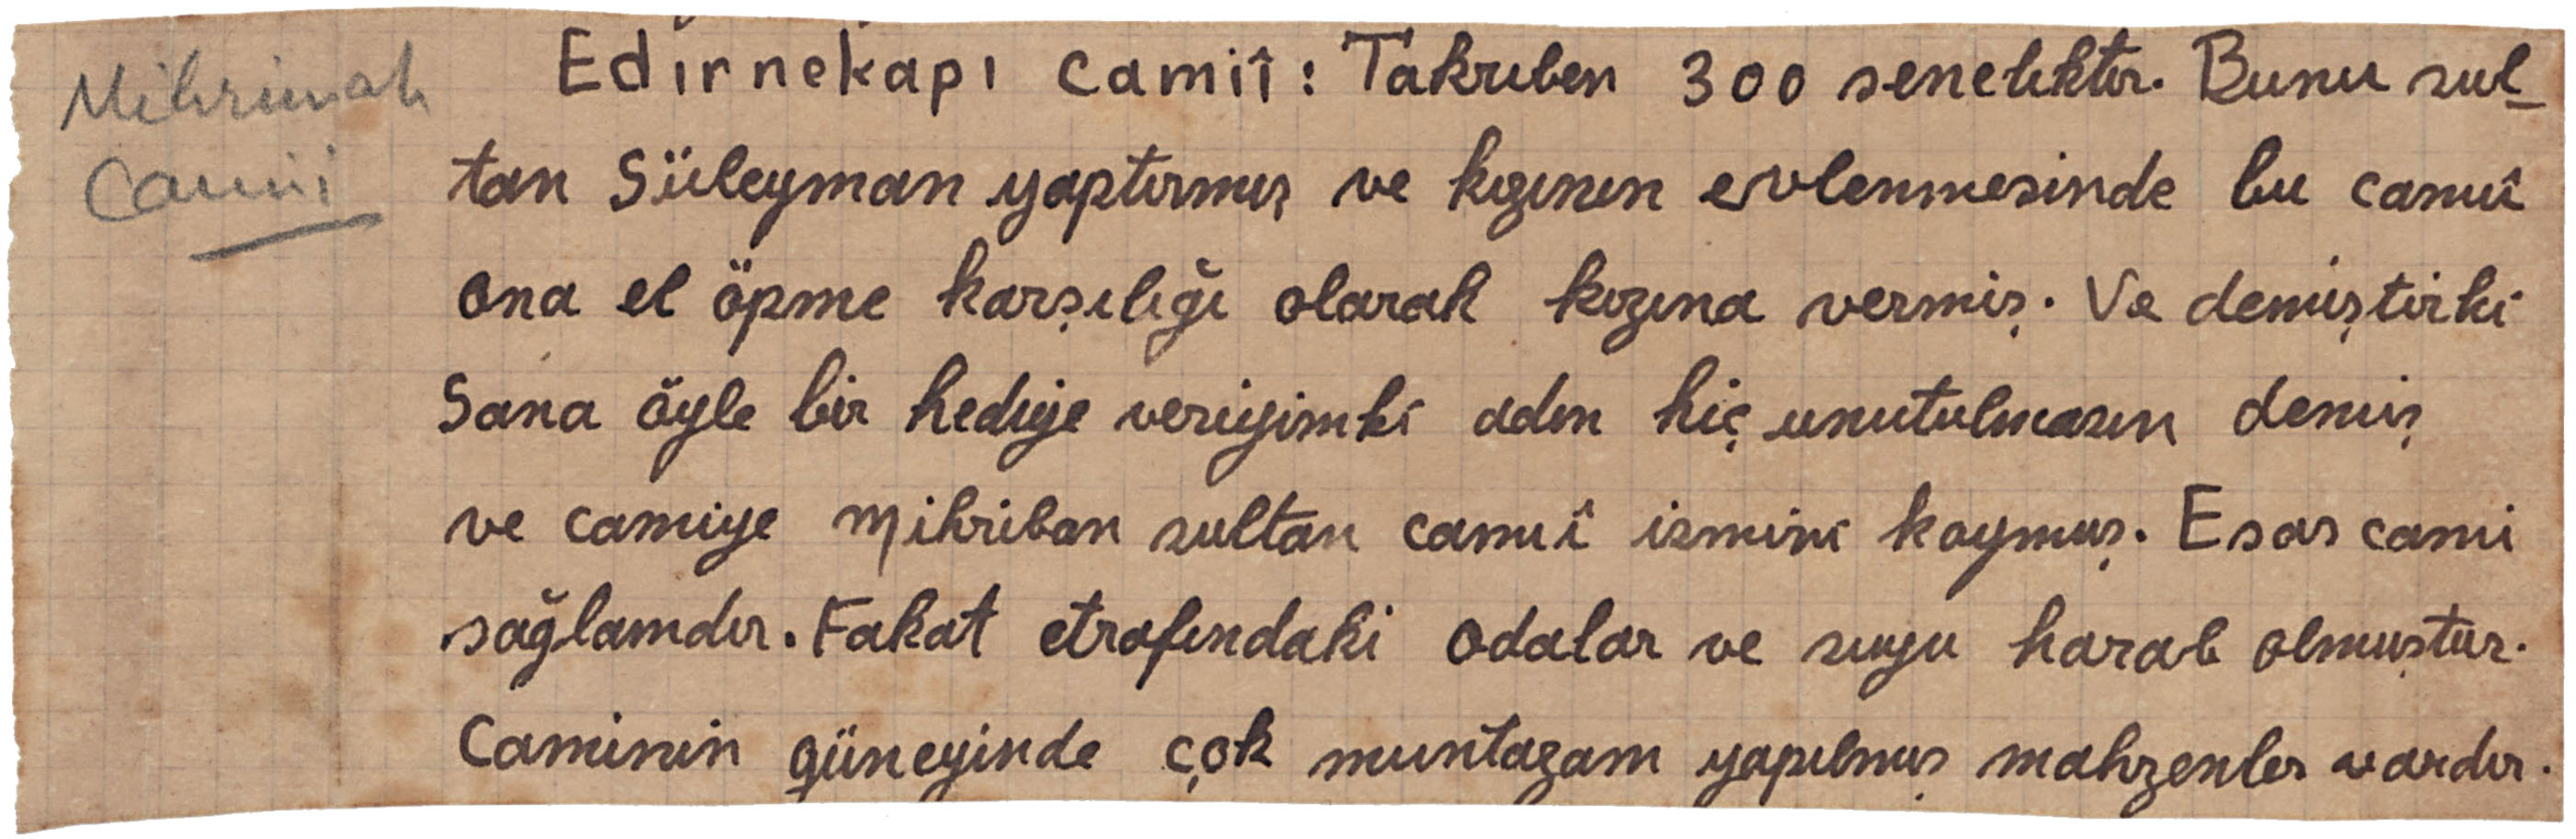 Mihrimah
Camii
Edirnekapı Camiî : Takriben 300 seneliktir. Bunu sul-
tan Süleyman yaptırmış ve kızının evlenmesinde bu camiî
ona el öpme karşılığı olarak kızına vermiş. Ve demiştirki
Sana öyle bir hediye veriyimki adın hiç unutulmasın demiş
ve camiye Mihriban sultan camiî ismini koymuş. Esas cami
sağlamdır. Fakat etrafındaki odalar ve suyu harab olmuştur.
Caminin güneyinde çok muntazam yapılmış mahzenler vardır.